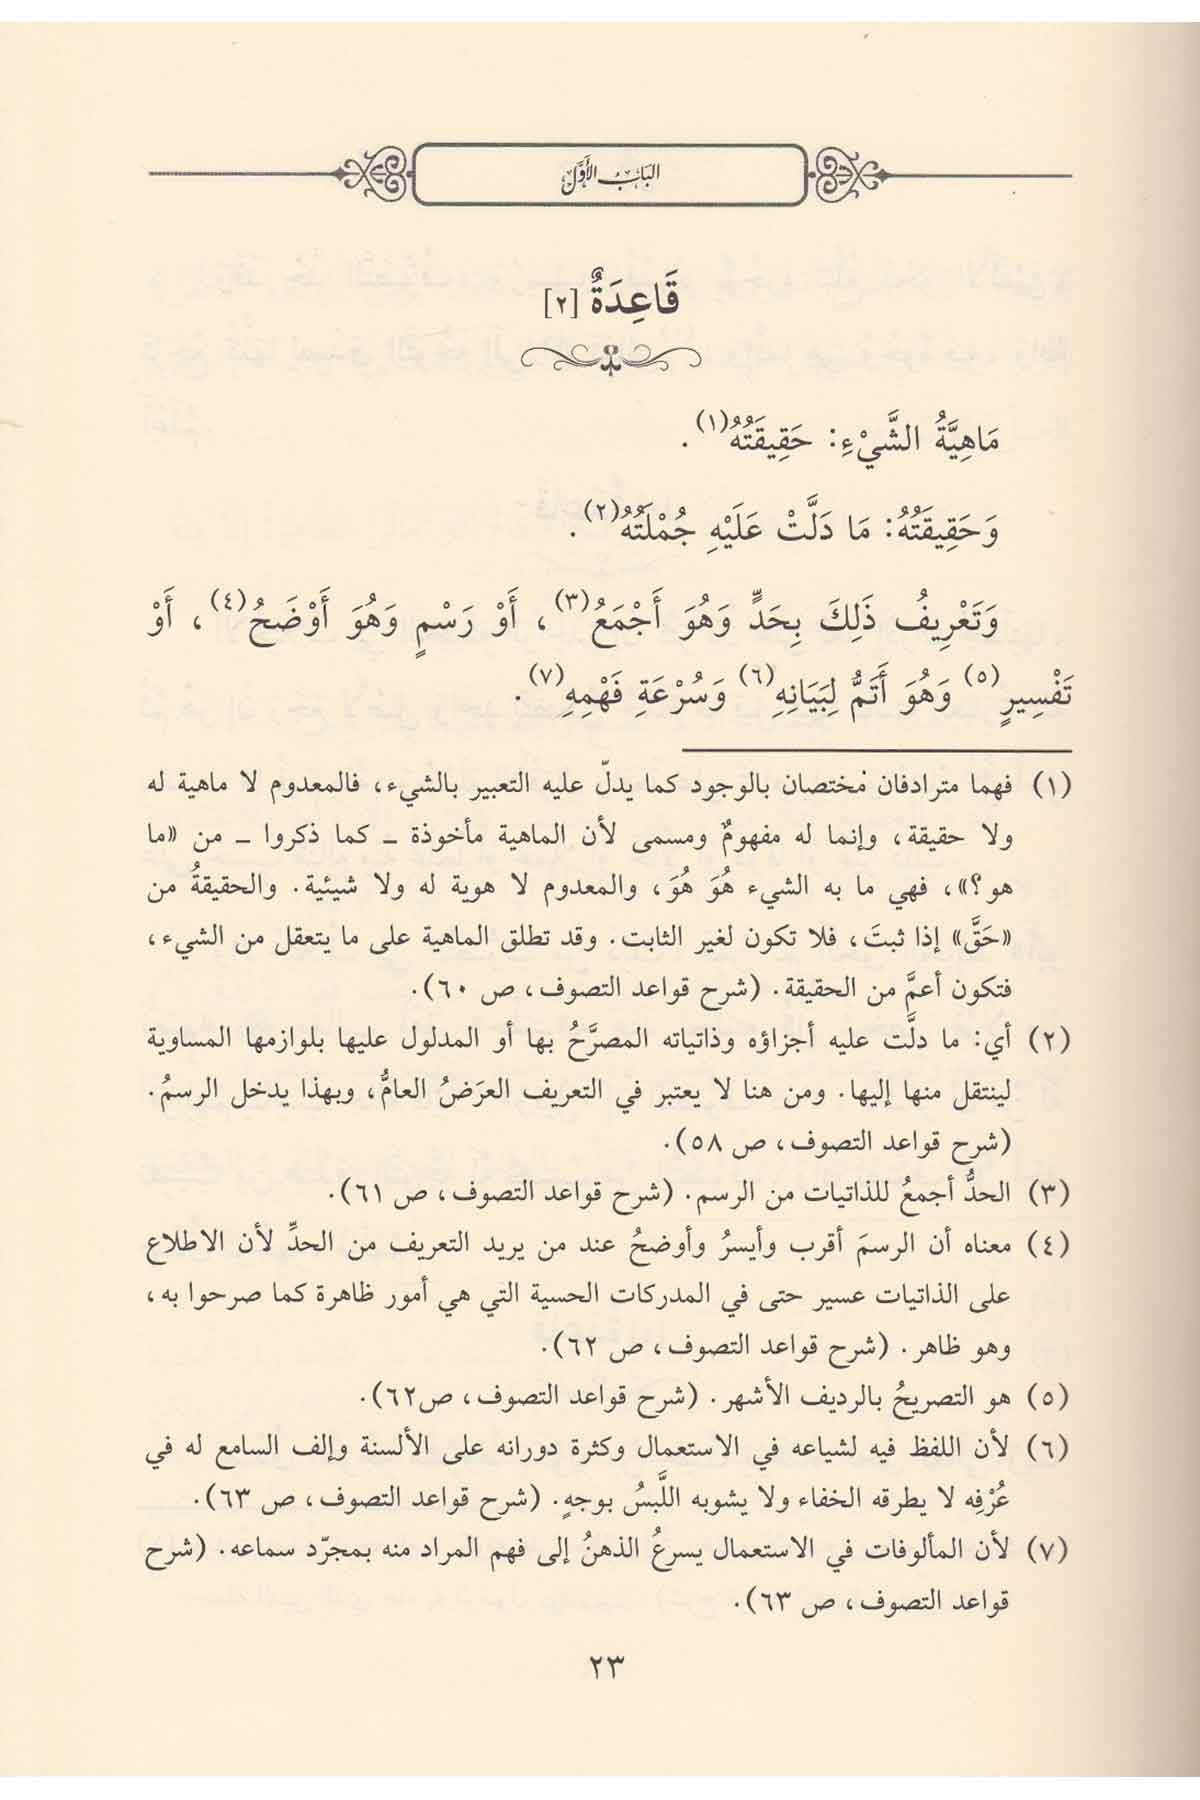 البَابُ الأَوَّلُ
قَاعِدَةٌ [٢]
مَاهِيَّةُ الشَّيْءِ: حَقِيقَتُهُ(١).
وَحَقِيقَتُهُ: مَا دَلَّتْ عَلَيْهِ جُمْلَتُهُ(٢).
وَتَعْرِيفُ ذَلِكَ بِحَدٍّ وَهُوَ أَجْمَعُ(٣)، أَوْ رَسْمٍ وَهُوَ أَوْضَحُ(٤)، أَوْ
تَفْسِيرٍ(٥) وَهُوَ أَتَمُّ لِبَيَانِهِ(٦) وَسُرْعَةِ فَهْمِهِ(٧).
(١) فهما مترادفان مُختصان بالوجود كما يدلّ عليه التعبير بالشيء، فالمعدوم لا ماهية له
ولا حقيقة، وإنما له مفهومٌ ومسمى لأن الماهية مأخوذة ــ كما ذكروا ــ من «ما
هو؟»، فهي ما به الشيء هُوَ هُوَ، والمعدوم لا هوية له ولا شيئية. والحقيقةُ من
«حَقَّ» إذا ثبتَ، فلا تكون لغير الثابت. وقد تطلق الماهية على ما يتعقل من الشيء،
فتكون أعمَّ من الحقيقة. (شرح قواعد التصوف، ص ٦٠).
(٢) أي: ما دلَّت عليه أجزاؤه وذاتياته المصرَّحُ بها أو المدلول عليها بلوازمها المساوية
لينتقل منها إليها. ومن هنا لا يعتبر في التعريف العرَضُ العامُّ، وبهذا يدخل الرسمُ.
(شرح قواعد التصوف، ص ٥٨).
(٣) الحدُّ أجمعُ للذاتيات من الرسم. (شرح قواعد التصوف، ص ٦١).
(٤) معناه أن الرسمَ أقرب وأيسرُ وأوضحُ عند من يريد التعريف من الحدِّ لأن الاطلاع
على الذاتيات عسير حتى في المدركات الحسية التي هي أمور ظاهرة كما صرحوا به،
وهو ظاهر. (شرح قواعد التصوف، ص ٦٢).
(٥) هو التصريحُ بالرديف الأشهر. (شرح قواعد التصوف، ص٦٢).
(٦) لأن اللفظ فيه لشياعه في الاستعمال وكثرة دورانه على الألسنة وإلف السامع له في
عُرْفِه لا يطرقه الخفاء ولا يشوبه اللَّبسُ بوجهٍ. (شرح قواعد التصوف، ص ٦٣).
(٧) لأن المألوفات في الاستعمال يسرعُ الذهنُ إلى فهم المراد منه بمجرّد سماعه. (شرح
قواعد التصوف، ص ٦٣).
٢٣